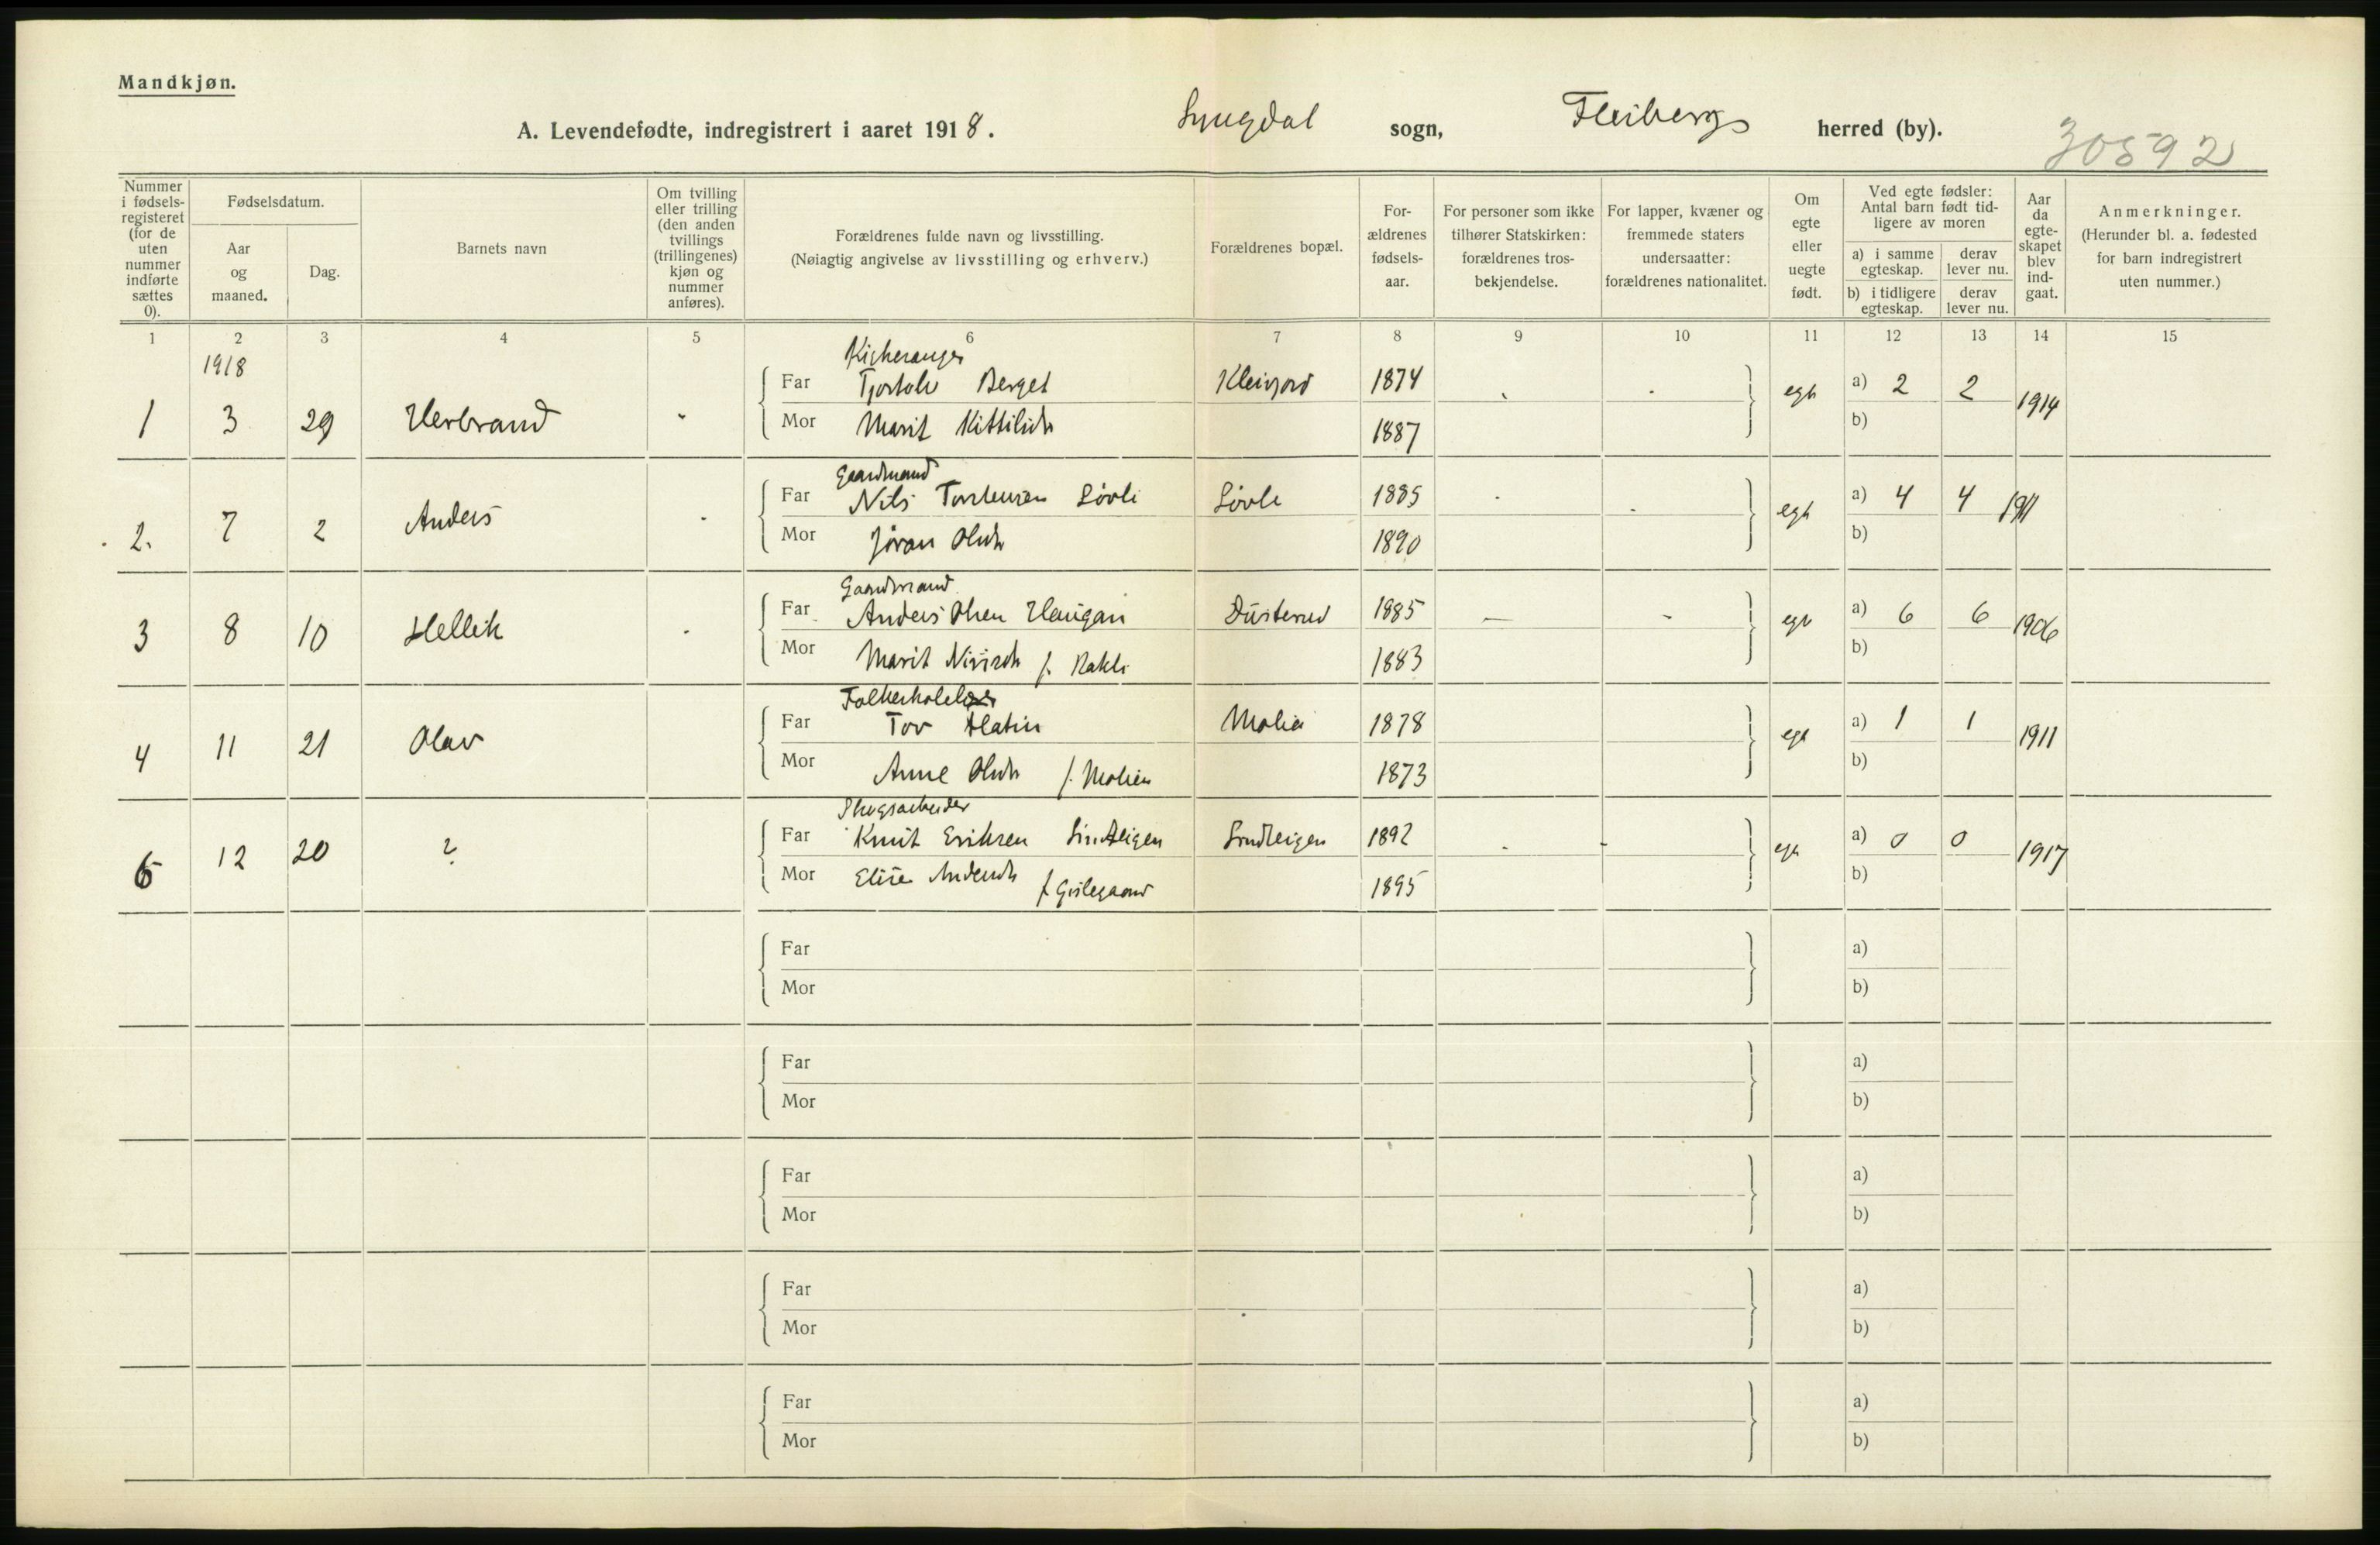 Mandkjøn.
A. Levendefødte, indregistrert i aaret 1918. Lyngdal sogn, Flesbergs herred (by).
30592
Nummer i fødsels-registeret (for de uten nummer indførte sættes 0).
Fødselsdatum.
Aar og maaned.
Dag.
Barnets navn
Om tvilling eller trilling (den anden tvillings (trillingenes) kjøn og nummer anføres).
Forældrenes fulde navn og livsstilling.
(Nøiagtig angivelse av livsstilling og erhverv.)
Forældrenes bopæl.
For-ældrenes fødsels-aar.
For personer som ikke tilhører Statskirken: forældrenes tros-bekjendelse.
For lapper, kvæner og fremmede staters undersaatter: forældrenes nationalitet.
Om egte eller uegte født.
Ved egte fødsler: Antal barn født tid-ligere av moren
a) i samme egteskap.
derav lever nu.
b) i tidligere egteskap.
derav lever nu.
Aar da egte-skapet blev ind-gaat.
Anmerkninger.
(Herunder bl. a. fødested for barn indregistrert uten nummer.)
1 2 3 4 5 6 7 8 9 10 11 12 13 14 15
1918
Kirkesanger
1 3 29 Herbrand - Far Tjostolv Berget Kleivjord 1874 - - egte a) 2 2 1914
Mor Marit Kittilsdtr 1887 b)
Gaardmand
2. 7 2 Anders - Far Nils Torstensen Løvli Løvli 1885 - - egte a) 4 4 1911
Mor Jøran Olsdtr 1890 b)
Gaardmand
3 8 10 Hellik - Far Anders Olsen Haugan Dusterud 1885 - - egte a) 6 6 1906
Mor Marit f. 1883 b)
Folkeskolelær
4 11 21 Olav Far Tov Flatin Molia 1878 egte a) 1 1 1911
Mor Anne Olsdtr f. Molien 1873 b)
Skogsarbeider
5 12 20 ? Far Knut Eriksen 1892 - - egte a) 0 0 1917
Mor Elise Andersdtr f. 1895 b)
Far a)
Mor b)
Far a)
Mor b)
Far a)
Mor b)
Far a)
Mor b)
Far a)
Mor b)